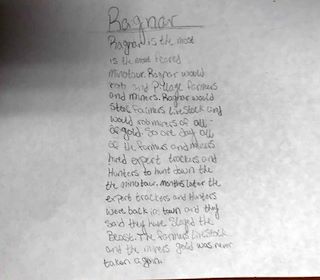 Ragnar
Ragnar is the most
is the most feared
minotaur. Ragnar would
rob and Pillage farmers
and miners. Ragnar would
Steal Farmers livestock and
would rob miners of all
of gold. So one day all
of the farmers and miners
hired expert trackers and
Hunters to hunt down the
the minotaur. months later the
expert trackers and Hunters
were back in town and they
said they have Slayed the
Beast. The farmers livestock
and the miners gold was never
taken again.